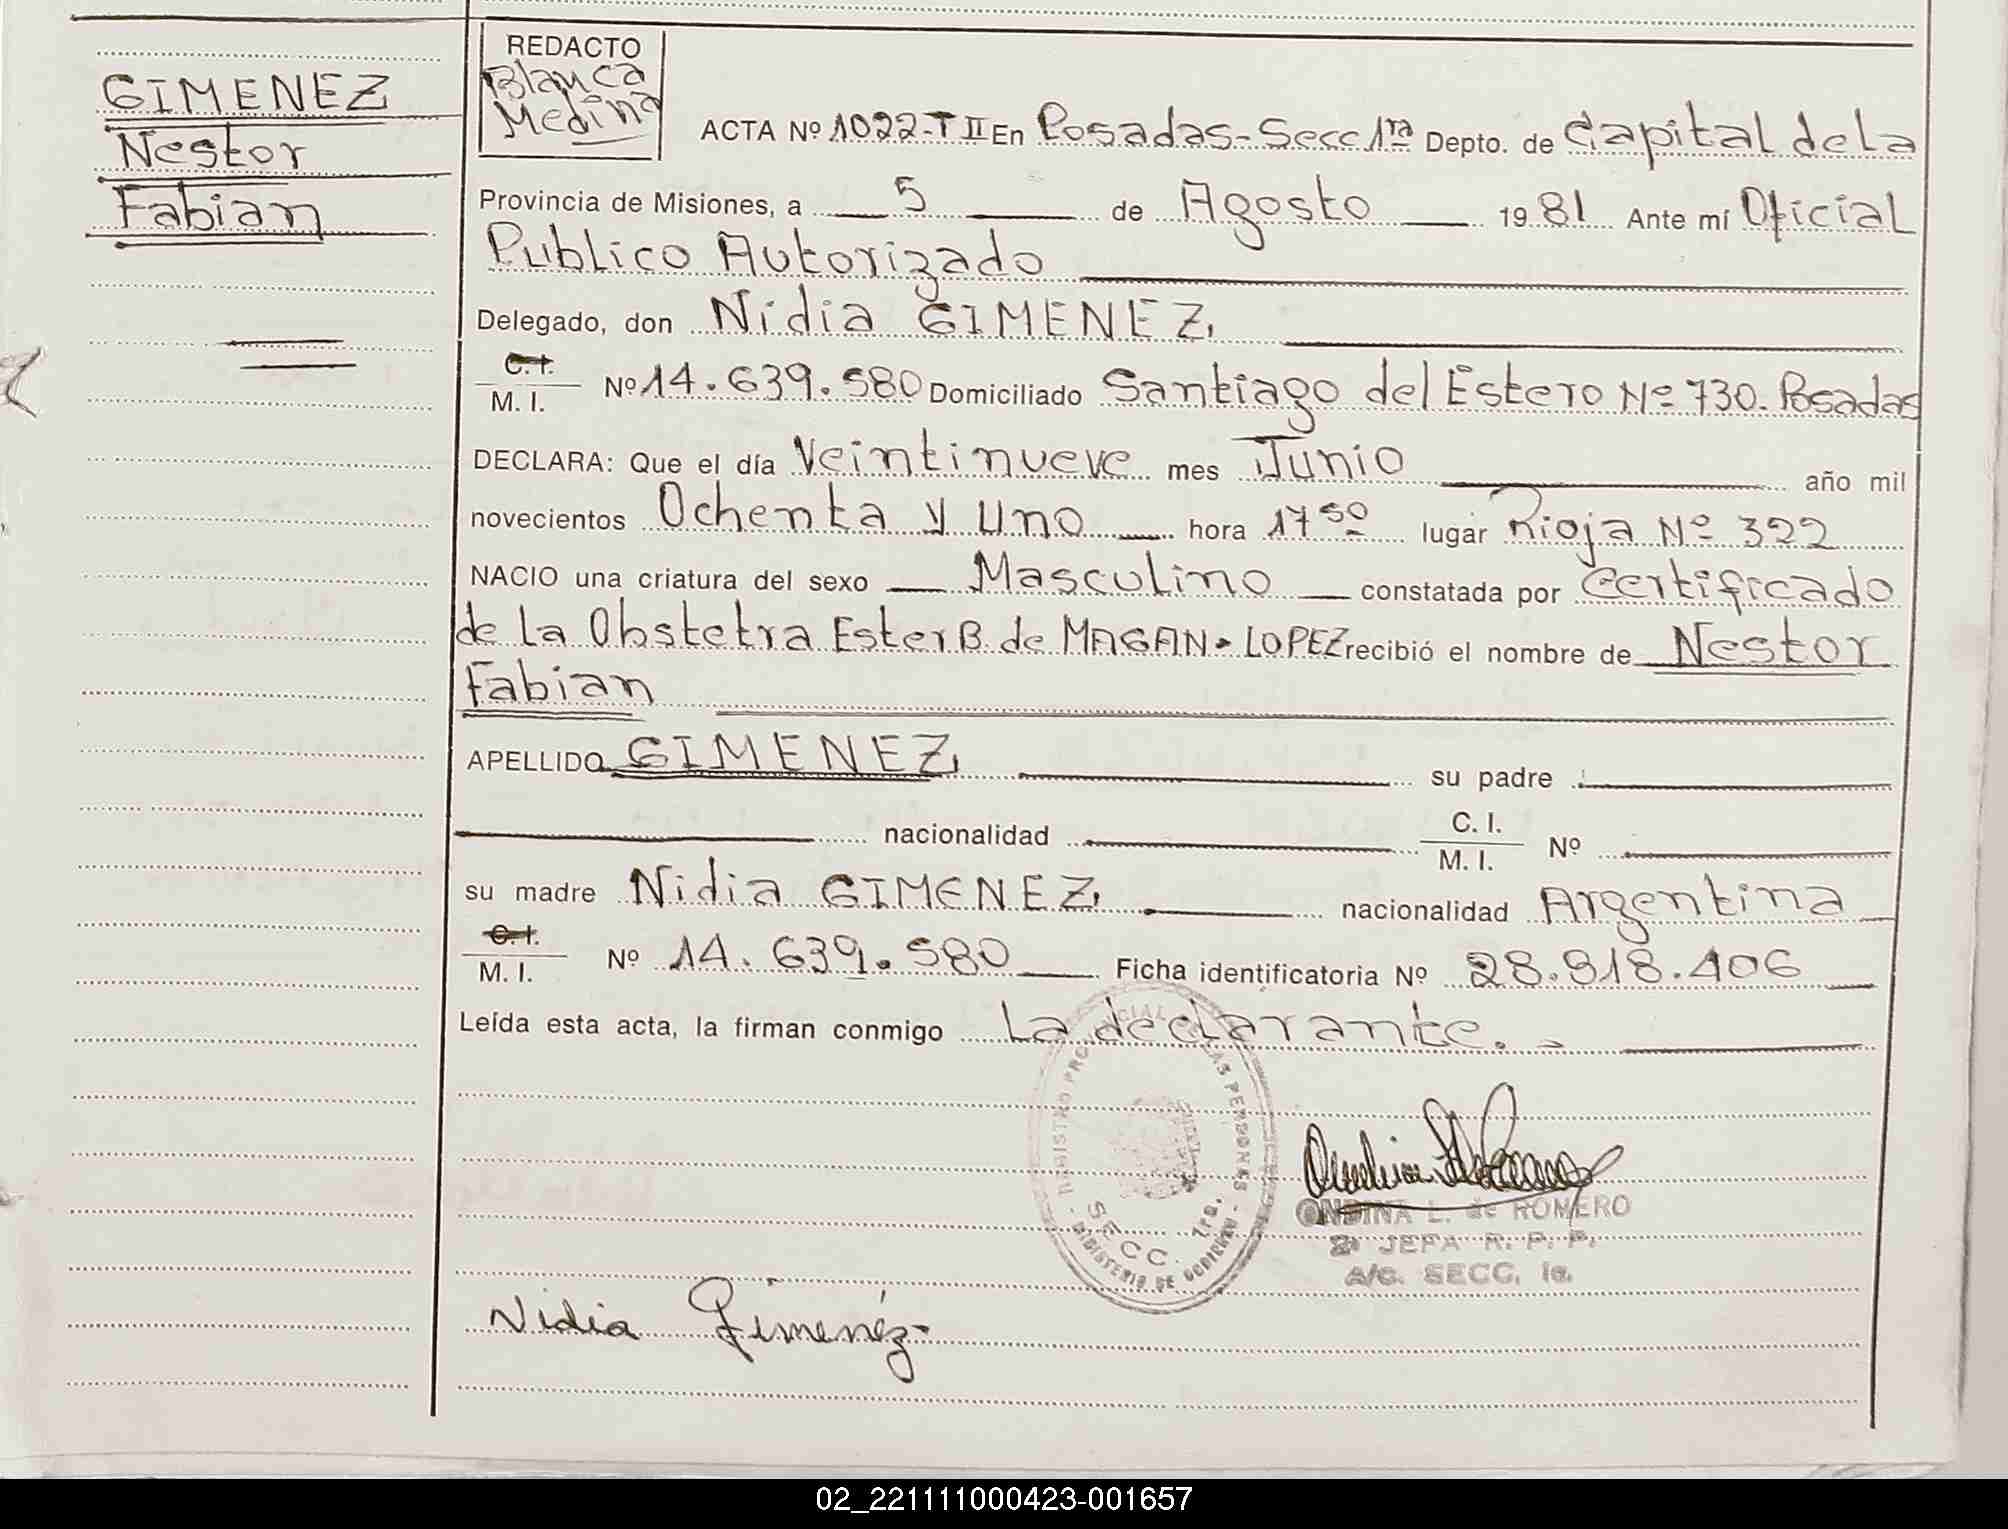 GIMENEZ
Nestor
Fabian
REDACTO
Blanca
Medina
ACTA Nº 1022-T II En Posadas-Secc 1ra Depto. de Capital de la
Provincia de Misiones, a 5 de Agosto 1981 Ante mí Oficial
Publico Autorizado
Delegado, don Nidia GIMENEZ,
C.I.
M. I. Nº 14.639.580 Domiciliado Santiago del Estero Nº 730. Posadas
DECLARA: Que el día Veintinueve mes Junio año mil
novecientos Ochenta y Uno hora 17 50 lugar Rioja Nº 322
NACIO una criatura del sexo Masculino constatada por Certificado
de la Obstetra Ester B. de MAGAN-LOPEZ recibió el nombre de Nestor
Fabian
APELLIDO GIMENEZ, su padre
nacionalidad C. I.
M. I. Nº
su madre Nidia GIMENEZ, nacionalidad Argentina
C.I.
M. I. Nº 14.639.580 Ficha identificatoria Nº 28.818.406
Leída esta acta, la firman conmigo La declarante.-
REGISTRO PROVINCIAL LAS PERSONAS
SECC. 1ra.
MINISTERIO DE GOBIERNO
ONDINA L. de ROMERO
2ª JEFA R. P. P.
A/C. SECC. 1a.
Nidia Gimenéz-
02_221111000423-001657